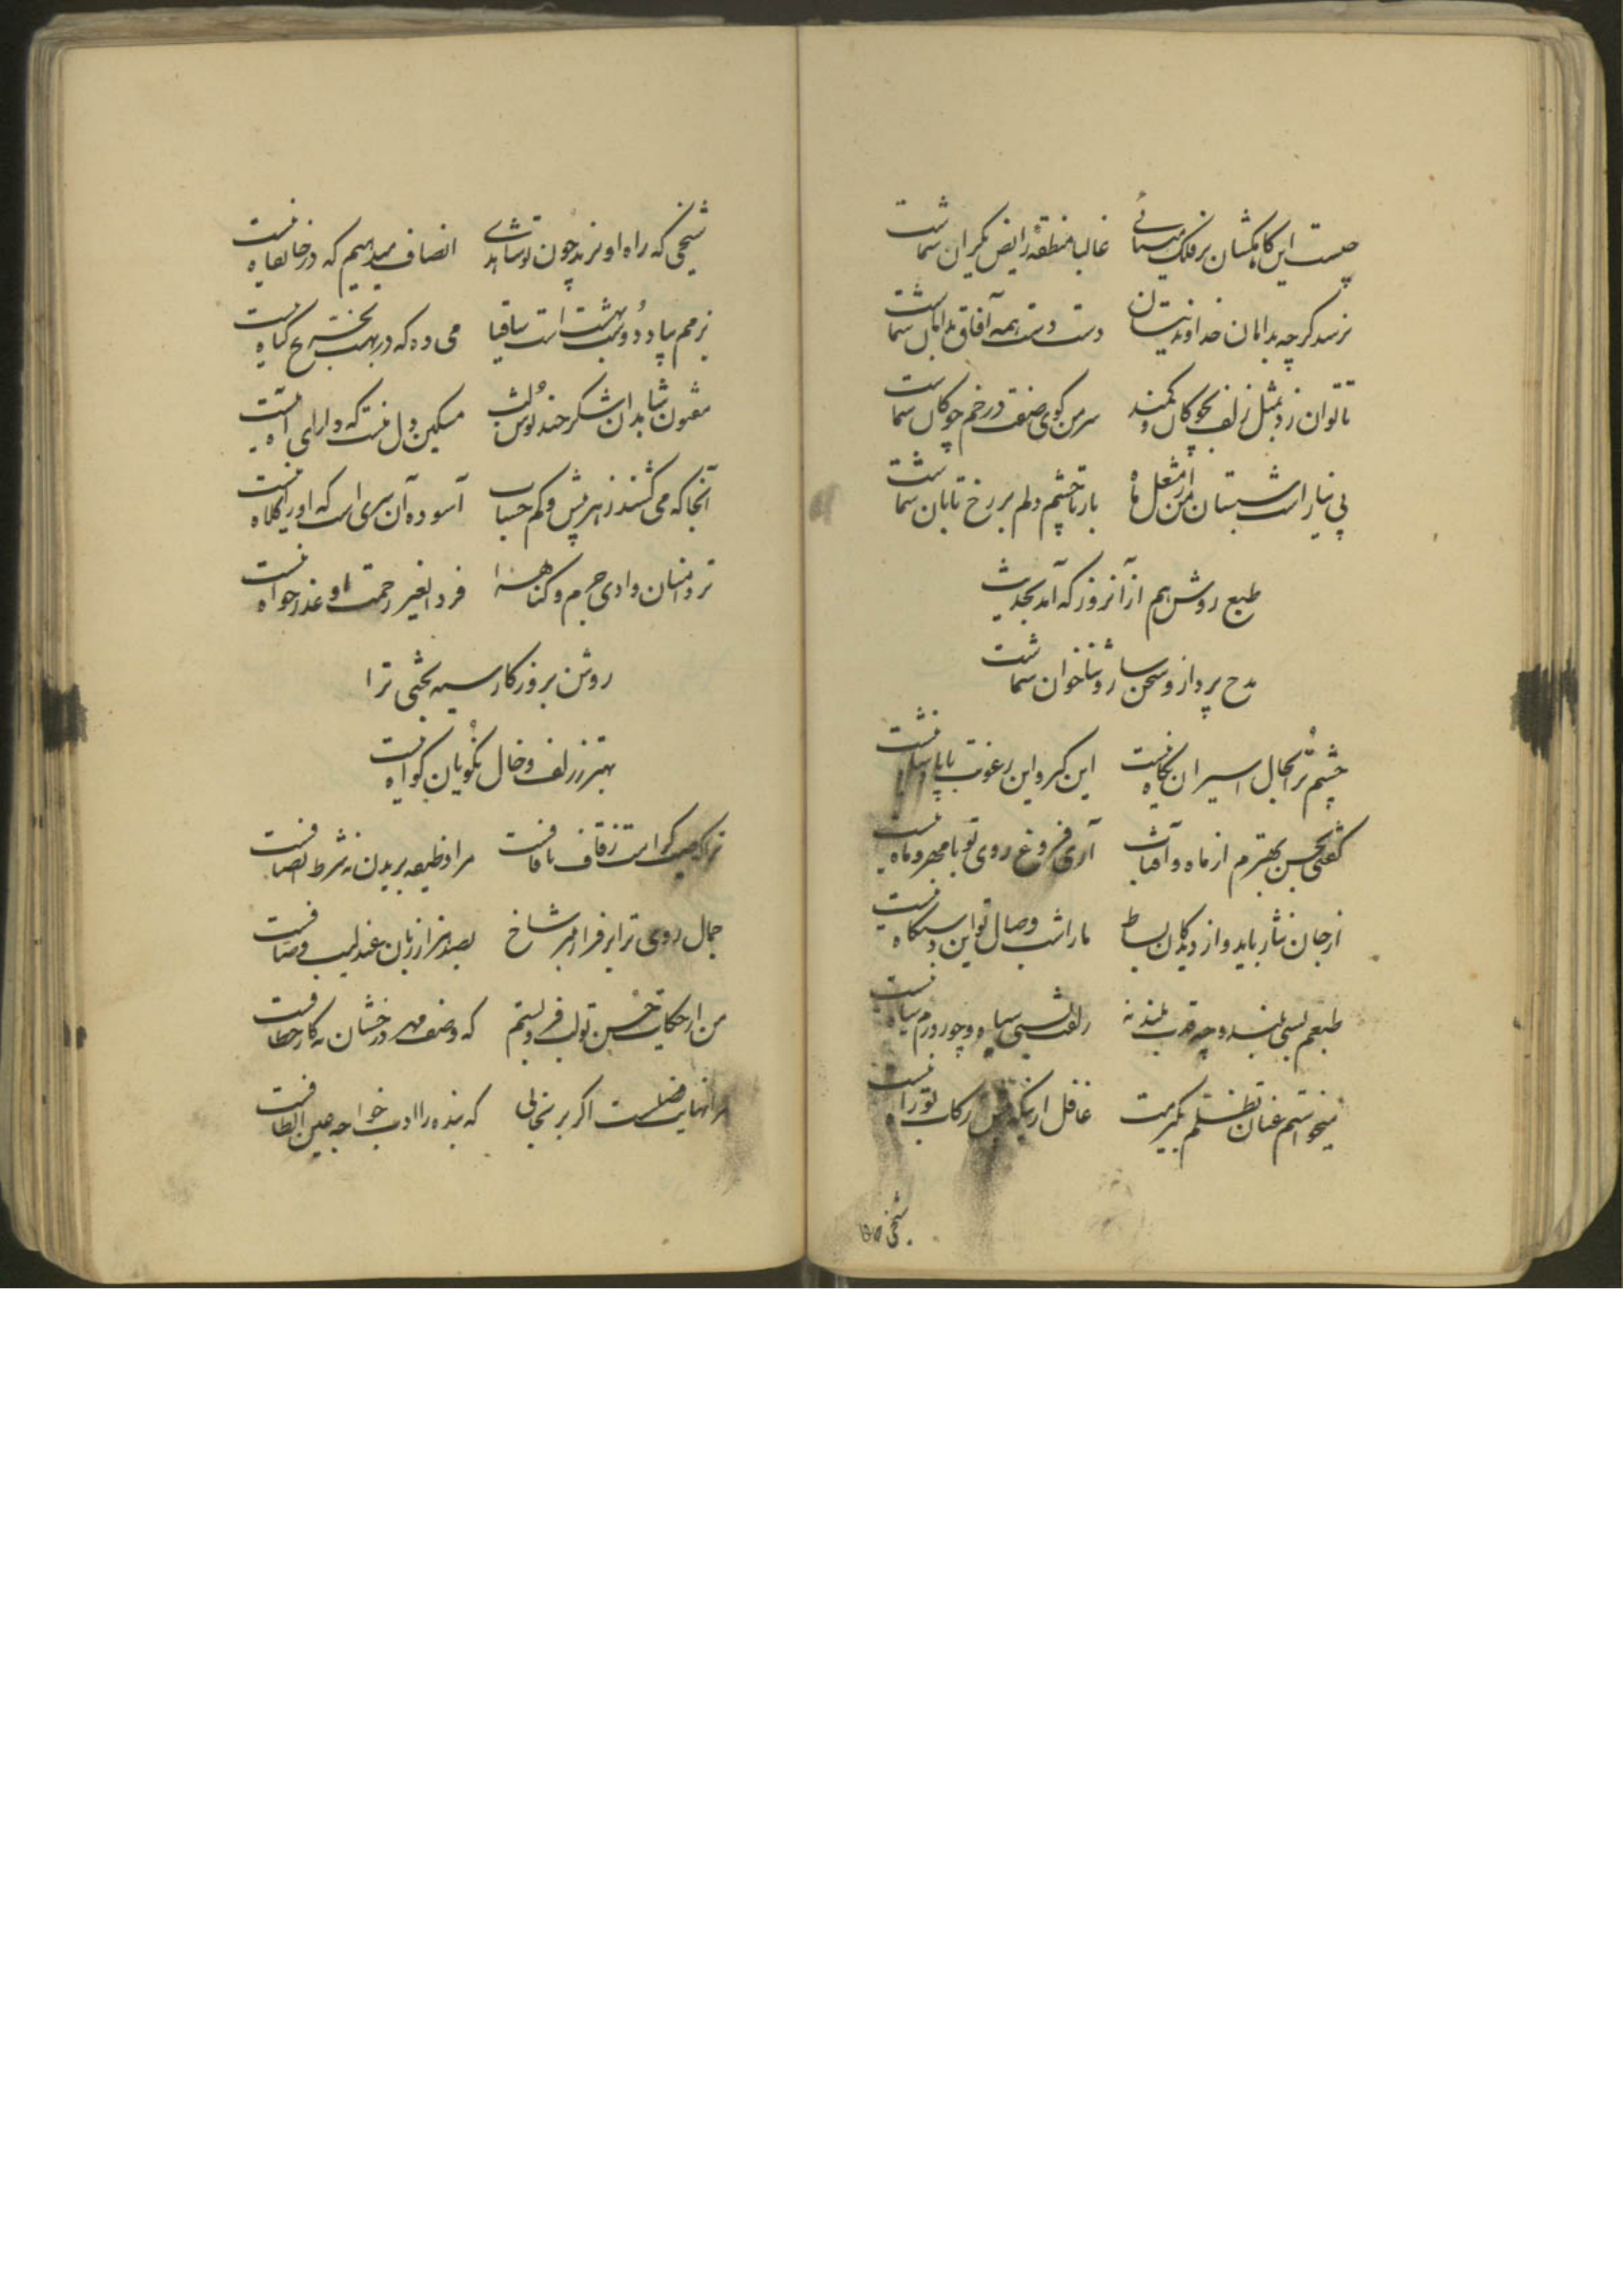 چیست این کاهکشان بر فلک مینائی غالبا منطقه رایض یکران شماست
نرسد گرچه بدامان خداوندیتان دست دست همه آفاق بدامان شماست
تا توان زد بمثل زلف بچوکان و کمند سر من کوی صفت در خم چوکان شماست
بی نیاز است شبستان من از مشعل ماه باز تا چشم دلم بر رخ تابان شماست
طبع روشن هم از آنروز که آمد بحدیث
مدح پرداز و سخن ساز و ثناخوان شماست
چشم ترا بحال اسیران نگاه نیست این کبر و این رعونت با پادشاه نیست
گفتی بحسن بهترم از ماه و آفتاب آری فروغ روی تو با مهر و ماه نیست
از جان نثار باید و از دیدگان بساط ما را شب وصال تو این دستگاه نیست
طبعم بسی بلند و چو قدت بلند نه زلفت بسی سیاه و چو روزم سیاه نیست
میخواستم عنان تظلم بگیرمت غافل از اینکه رکاب تو راه نیست
شیخی که
شیخی که راه او نزند چون تو شاهدی انصاف میدهیم که در خانقاه نیست
بزمم بیاد دوست بهشت است ساقیا می ده که در بهشت بخشی گناه نیست
مفتون شاهدان شکرخند نوش لب مسکین دل منست که دارای آه نیست
آنجا که می کشند ز هر بیش و کم حساب آسوده آن سری است که او را کلاه نیست
تردامنان وادی جرم و گناه را فردا بغیر رحمت او عذرخواه نیست
روشن بروزکار سیه بختی ترا
بهتر ز زلف و خال نکویان کواه نیست
ز قاف تا قافست مرا وظیفه بریدن نه شرط انصافست
جمال روی ترا بر فراز منبر شاخ بصد هزار زبان عندلیب وصافست
من از حکایت حسن تو لب فرو بستم که وصف مهر درخشان نه کار خطافست
مرا نهایت فضلست اگر برنجانی که بنده را ادب خواجه عین الطافست